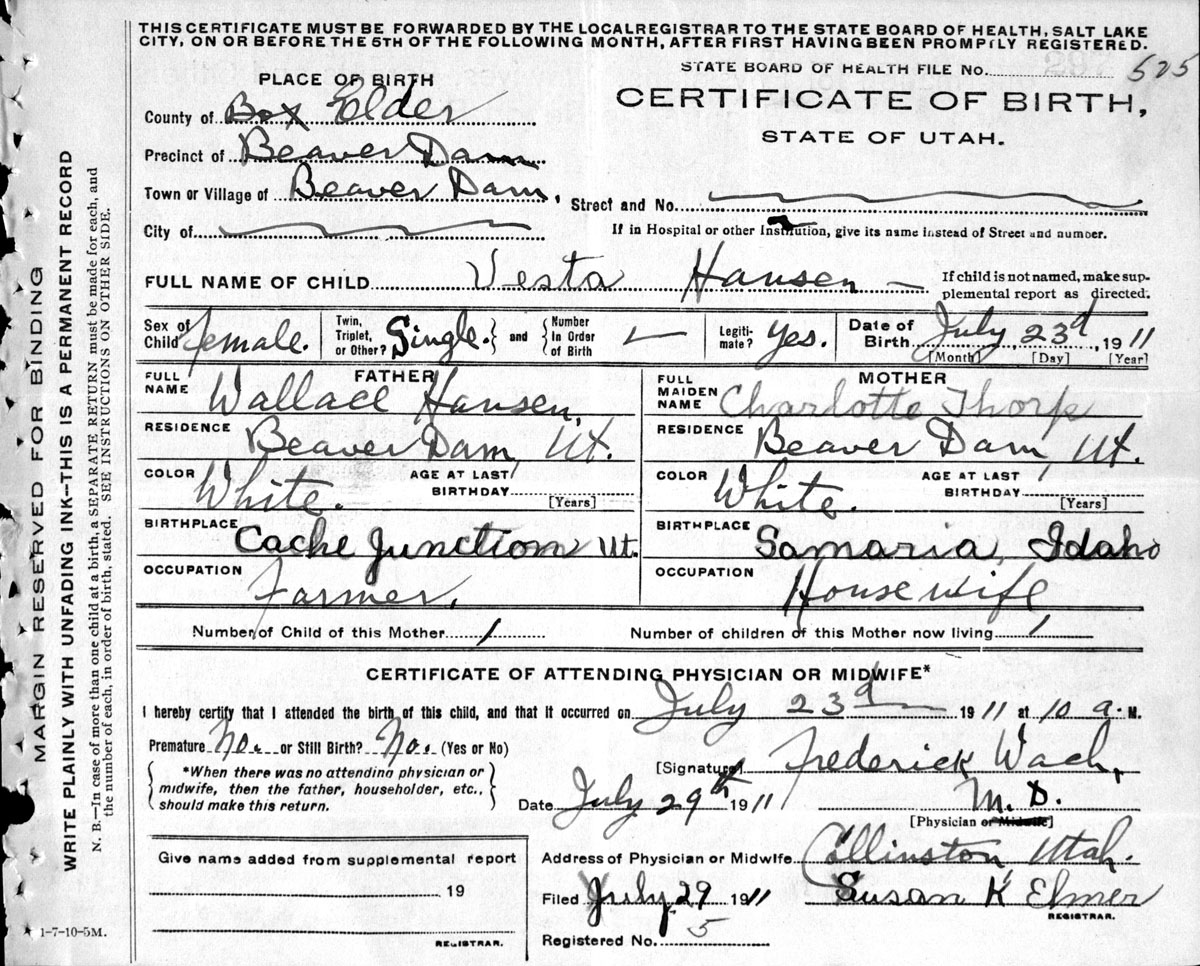 THIS CERTIFICATE MUST BE FORWARDED BY THE LOCAL REGISTRAR TO THE STATE BOARD OF HEALTH, SALT LAKE
CITY, ON OR BEFORE THE 5TH OF THE FOLLOWING MONTH, AFTER FIRST HAVING BEEN PROMPTLY REGISTERED.
STATE BOARD OF HEALTH FILE NO. 525
PLACE OF BIRTH
CERTIFICATE OF BIRTH,
STATE OF UTAH.
County of Box Elder
Precinct of Beaver Dam
Town or Village of Beaver Dam,
Street and No.
City of
If in Hospital or other Institution, give its name instead of Street and number.
FULL NAME OF CHILD Vesta Hansen
If child is not named, make sup-
plemental report as directed.
Sex of Child female.
Twin, Triplet, or Other? Single. } and { Number In Order of Birth
Legiti-mate? Yes.
Date of Birth July 23d 1911
[Month] [Day] [Year]
FATHER
FULL NAME Wallace Hansen,
RESIDENCE Beaver Dam, Ut.
COLOR White.
AGE AT LAST BIRTHDAY [Years]
BIRTHPLACE Cache Junction Ut.
OCCUPATION Farmer.
MOTHER
FULL MAIDEN NAME Charlotte Thorp
RESIDENCE Beaver Dam, Ut.
COLOR White.
AGE AT LAST BIRTHDAY [Years]
BIRTHPLACE Samaria, Idaho
OCCUPATION Housewife
Number of Child of this Mother 1
Number of children of this Mother now living 1
CERTIFICATE OF ATTENDING PHYSICIAN OR MIDWIFE*
I hereby certify that I attended the birth of this child, and that it occurred on July 23d 1911 at 10 a. M.
Premature No. or Still Birth? No. (Yes or No)
{ *When there was no attending physician or
midwife, then the father, householder, etc.,
should make this return. }
[Signature] Frederick Wach,
M. D.
[Physician or Midwife]
Date July 29th 1911
Address of Physician or Midwife Collinston, Utah.
Give name added from supplemental report
19
REGISTRAR.
Filed July 29 1911
Susan K Elmer
REGISTRAR.
Registered No. 5
MARGIN RESERVED FOR BINDING
WRITE PLAINLY WITH UNFADING INK--THIS IS A PERMANENT RECORD
N. B.--In case of more than one child at a birth, a SEPARATE RETURN must be made for each, and
the number of each, in order of birth, stated. SEE INSTRUCTIONS ON OTHER SIDE.
1-7-10-5M.